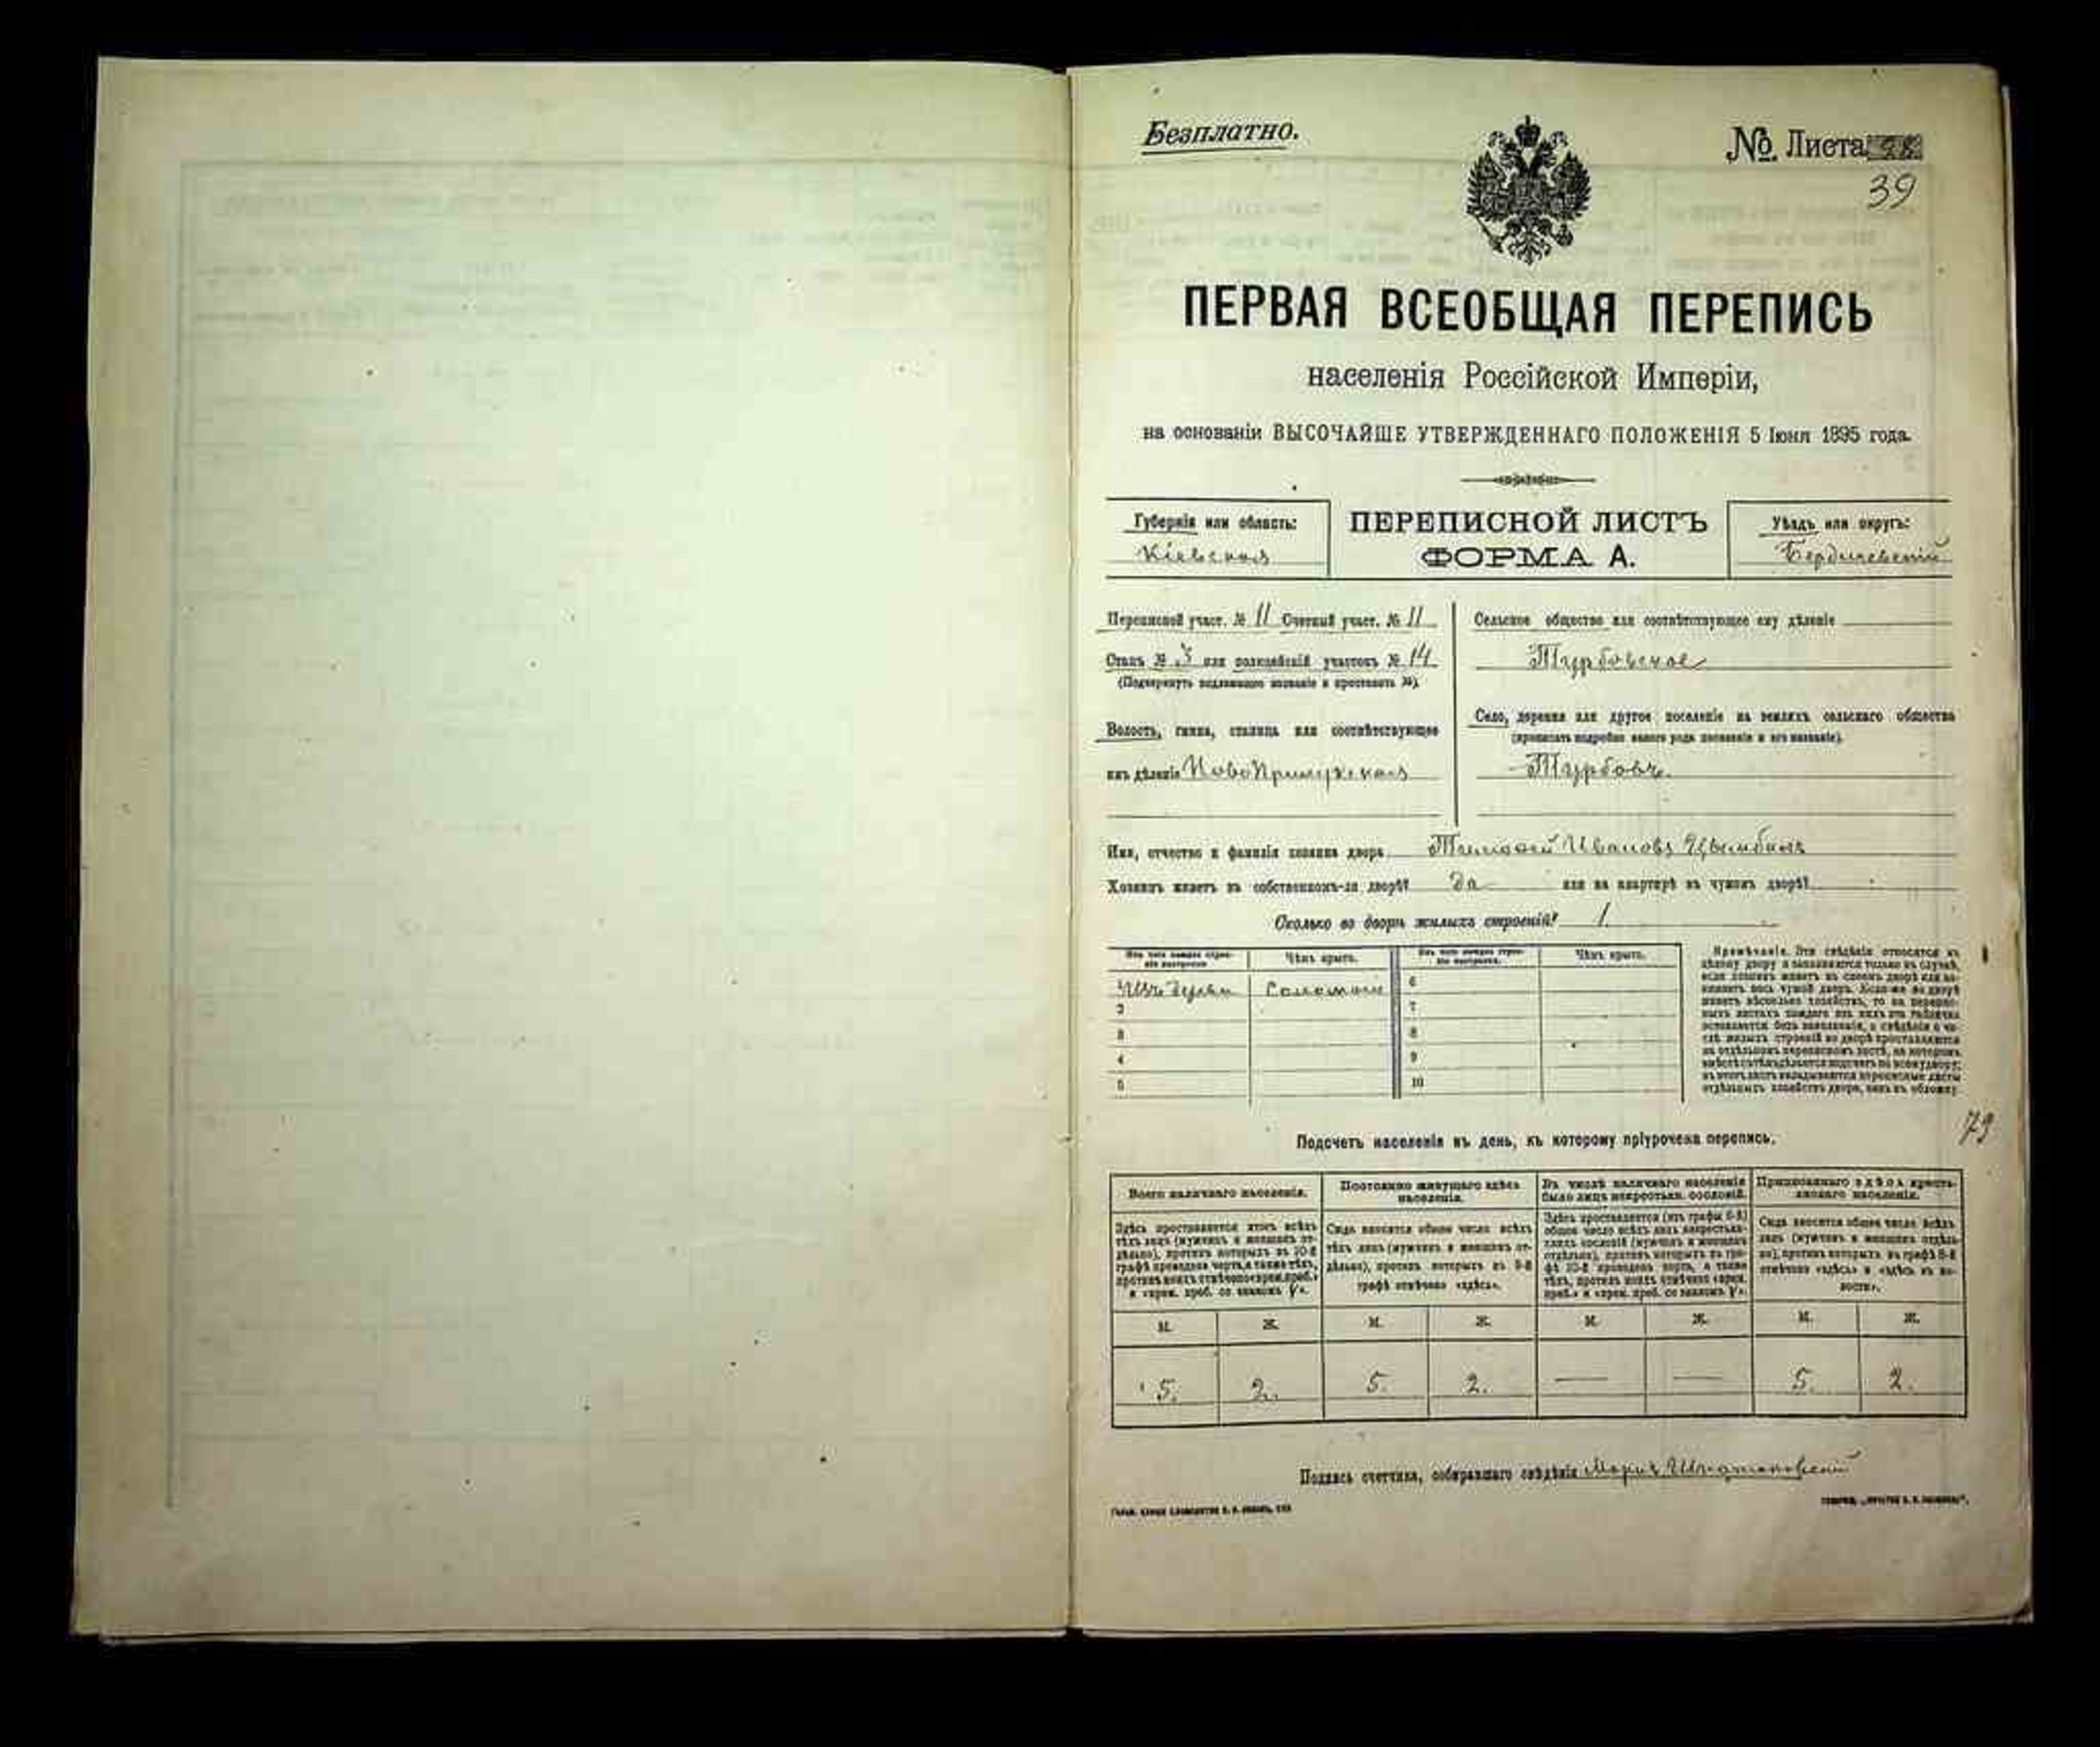 Безплатно.
№ Листа
39
ПЕРВАЯ ВСЕОБЩАЯ ПЕРЕПИСЬ
населенія Россійской Имперіи,
на основаніи ВЫСОЧАЙШЕ УТВЕРЖДЕННАГО ПОЛОЖЕНІЯ 5 Іюня 1895 года.
Губернія или область:
Кіевская
ПЕРЕПИСНОЙ ЛИСТЪ
ФОРМА А.
Уѣздъ или округъ:
Бердичевскій
Переписной участ. № 11 Счетный участ. № 11
Станъ № 3 или полицейскій участокъ № 14
(Подчеркнуть подлежащее названіе и проставить №).
Волость, гмина, станица или соотвѣтствующее
имъ дѣленіе НовоПрилукская
Сельское общество или соотвѣтствующее ему дѣленіе
Турбовское
Село, деревня или другое поселеніе на земляхъ сельскаго общества
(прописать подробно какого рода поселеніе и его названіе).
Турбовъ.
Имя, отчество и фамилія хозяина двора Тимофей Ивановъ Цымбалъ
Хозяинъ живетъ въ собственномъ-ли дворѣ? да или на квартирѣ въ чужомъ дворѣ?
Сколько во дворѣ жилыхъ строеній? 1.
Изъ чего каждое строе-
ніе построено
Чѣмъ крыто.
Изъ чего каждое строе-
ніе построено.
Чѣмъ крыто.
Соломою
6
2
7
3
8
4
9
5
10
Примѣчаніе. Эти свѣдѣнія относятся къ
цѣлому двору и заполняются только въ случаѣ,
если хозяинъ живетъ въ своемъ дворѣ или за-
нимаетъ весь чужой дворъ. Если-же во дворѣ
живетъ нѣсколько хозяйствъ, то на перепис-
ныхъ листахъ каждаго изъ нихъ эта табличка
оставляется безъ заполненія, а свѣдѣнія о чи-
слѣ жилыхъ строеній во дворѣ проставляются
на отдѣльномъ переписномъ листѣ, на которомъ
вмѣстѣ съ тѣмъ дѣлается подсчетъ по всему двору;
въ этотъ листъ вкладываются переписные листы
отдѣльныхъ хозяйствъ двора, какъ въ обложку
79
Подсчетъ населенія въ день, къ которому пріурочена перепись.
Всего наличнаго населенія.
Постоянно живущаго здѣсь
населенія.
Въ числѣ наличнаго населенія
было лицъ некрестьян. сословій.
Приписаннаго здѣсь кресть-
янскаго населенія.
Здѣсь проставляется итогъ всѣхъ
тѣхъ лицъ (мужчинъ и женщинъ от-
дѣльно), противъ которыхъ въ 10-й
графѣ проведена черта, а также тѣхъ,
противъ коихъ отмѣчено «врем. преб.»
и «врем. преб. со знакомъ V».
Сюда вносится общее число всѣхъ
тѣхъ лицъ (мужчинъ и женщинъ от-
дѣльно), противъ которыхъ въ 9-й
графѣ отмѣчено «здѣсь».
Здѣсь проставляется (изъ графы 6-й)
общее число всѣхъ лицъ некрестьян-
скихъ сословій (мужчинъ и женщинъ
отдѣльно), противъ которыхъ въ гра-
фѣ 10-й проведена черта, а также
тѣхъ, противъ коихъ отмѣчено «врем.
преб.» и «врем. преб. со знакомъ V».
Сюда вносится общее число всѣхъ
лицъ (мужчинъ и женщинъ отдѣль-
но), противъ которыхъ въ графѣ 8-й
отмѣчено «здѣсь» и «здѣсь въ во-
лости».
М. Ж. М. Ж. М. Ж. М. Ж.
5. 2. 5. 2. — — 5. 2.
Подпись счетчика, собиравшаго свѣдѣнія